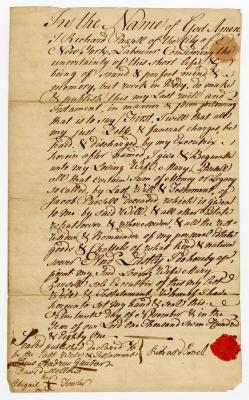 In the Name of God Amen,
I Richard Purcell of the City of
New York, Labourer Considering the
uncertainty of this short life &
being of Sound & perfect mind &
memory, but weak in Body, do make
& publish this my Last will and
Testament, in manner & form following
that is to say First, I will that all
my just Debts & funeral charges, be
paid & discharged by my Executrix
herein after named, I give & Bequeath
unto my Loving Wife Mary Purcell
all that Certain Sum of Money or Legacy
so called, by Last Will & Testament of
Jacob Purcell deceased which is given
to me by said Will, & all other Estate
whatsoever & wheresoever, & all the rest
residue & Remainder of my personal Estate
goods & Chattels of what kind & nature
soever And Lastly I do hereby ap
point my said Loving Wife Mary
Purcell sole Executrix of this my Last
Will & Testament, In Witness whereof I have
hereunto set my hand & seal this
day of November & in the
Year of our Lord One Thousand Seven Hundred
& Eighty One
Sealed published & declared to
be the Last Will & Testament
Andrew Gautier
David
Abigail Fowler
Richard Purcell